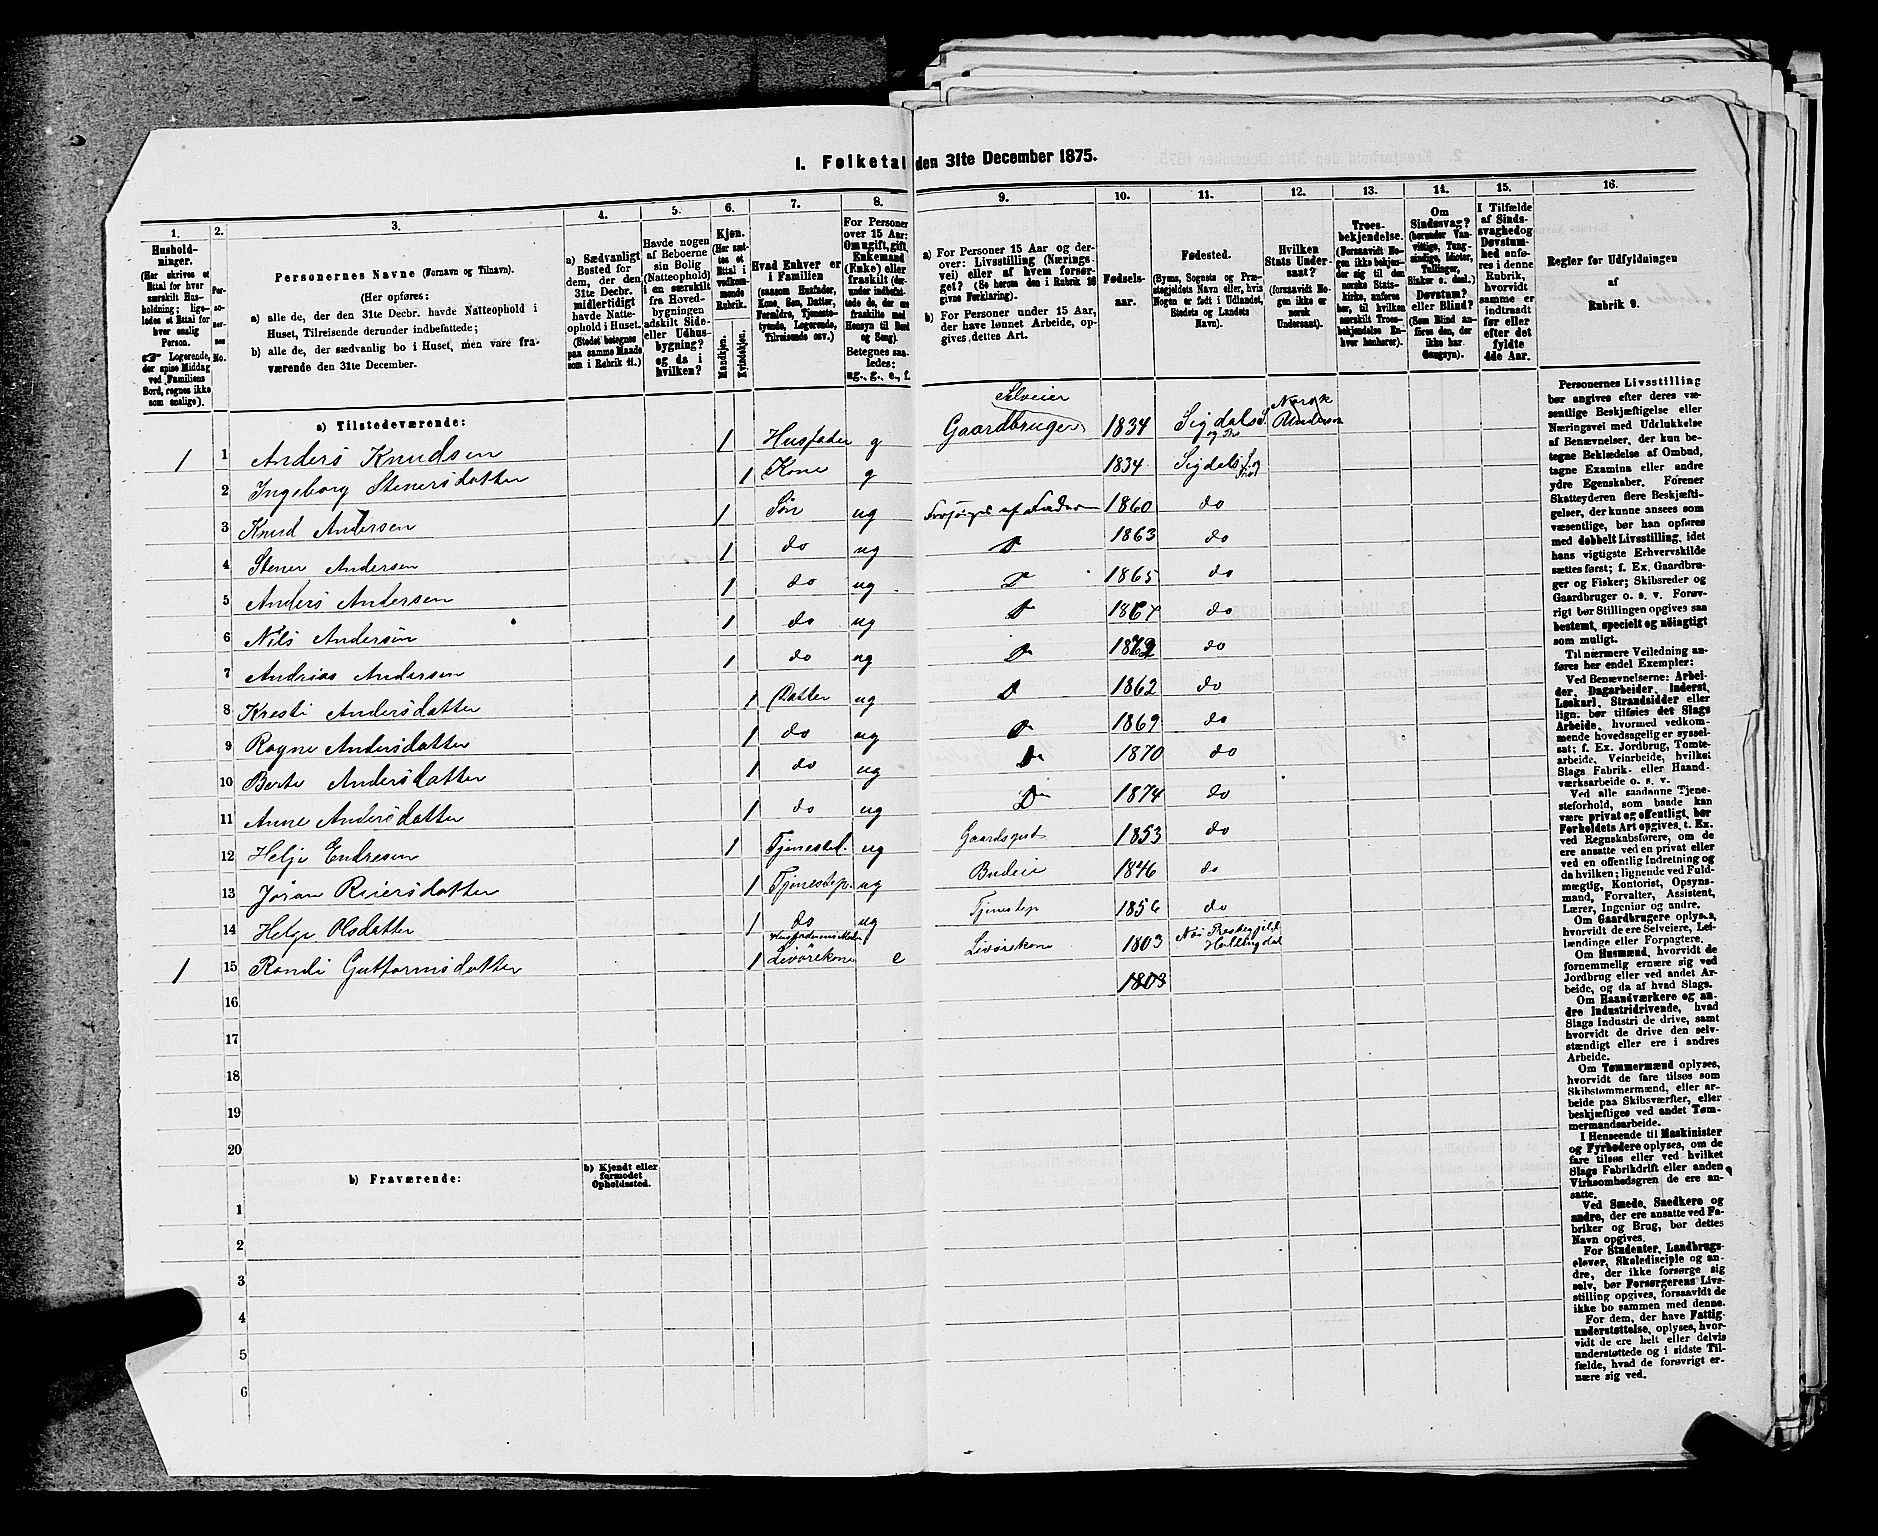 1. Folketal den 31te December 1875.
1.
2.
3.
4.
5.
6.
7.
8.
9.
10.
11.
12.
13.
14.
15.
16.
Hushold-
ninger.
(Her skrives et
Ettal for hver
særskilt Hus-
holdning; lige-
ledes et Ettal for
hver enslig
Person.
☞ Logerende,
der spise Middag
ved Familiens
Bord, regnes ikke
som enslige).
Per-
so-
ner-
nes
No.
Personernes Navne (Fornavn og Tilnavn).
(Her opføres:
a) alle de, der den 31te Decbr. havde Natteophold i
Huset, Tilreisende derunder indbefattede;
b) alle de, der sædvanlig bo i Huset, men vare fra-
værende den 31te December.
a) Sædvanligt
Bosted for
dem, der den
31te Decbr.
midlertidigt
havde Natte-
ophold i Huset.
(Stedet betegnes
paa samme Maade
som i Rubrik 11.)
Havde nogen
af Beboerne
sin Bolig
(Natteophold)
i en særskilt
fra Hoved-
bygningen
adskilt Side-
eller Udhus-
bygning?
og da i
hvilken?
Kjøn.
(Her sæt-
tes et
Ettal i
vedkom-
mende
Rubrik.
Mandkjøn.
Kvindekjøn.
Hvad Enhver er
i Familien
(saasom Husfader,
Kone, Søn, Datter,
Forældre, Tjeneste-
tyende, Logerende,
Tilreisende osv.)
For Personer
over 15 Aar:
Om ugift, gift,
Enkemand
(Enke) eller
fraskilt (der-
under indbefat-
tede de, der ere
fraskilte med
Hensyn til Bord
og Seng).
Betegnes saa-
ledes:
ug., g., e., f.
a) For Personer 15 Aar og der-
over: Livsstilling (Nærings-
vei) eller af hvem forsør-
get? (Se herom den i Rubrik 16
givne Forklaring).
b) For Personer under 15 Aar,
der have lønnet Arbeide, op-
gives dettes Art.
Fødsels-
aar.
Fødested.
(Byens, Sognets og Præ-
stegjeldets Navn eller, hvis
Nogen er født i Udlandet,
Stedets og Landets
Navn).
Hvilken
Stats Under-
saat?
(forsaavidt No-
gen ikke er
norsk
Undersaat).
Troes-
bekjendelse.
(Forsaavidt No-
gen ikke bekjen-
der sig til den
norske Stats-
kirke, anføres
her, til hvilken
særskilt Troes-
bekjendelse En-
hver henhører).
Om
Sindssvag?
(herunder Van-
vittige, Tung-
sindige, Idioter,
Tullinger,
Sinker o. desl.)
Døvstum?
eller Blind?
(Som Blind an-
føres den, der
ikke har
Gangsyn).
I Tilfælde
af Sinds-
svaghed og
Døvstum-
hed anfø-
res i denne
Rubrik,
hvorvidt
samme er
indtraadt
før eller
efter det
fyldte
4de Aar.
Regler for Udfyldningen
af
Rubrik 9.
a) Tilstedeværende:
1 1 Anders Knudsen 1 Husfader g Selveier Gaardbruger 1834 Sigdals S. og Norsk
2 Ingeborg Stenersdatter 1 Kone g 1834 Sigdals
3 Knud Andersen 1 Søn ug af 1860 do
4 Stener Andersen 1 do ug D 1863 do
5 Anders Andersen 1 do ug D 1865 do
6 Nils Andersen 1 do ug D 1867 do
7 Andrias Andersen 1 do ug D do
8 Kresti Andersdatter 1 Datter ug D 1862 do
9 Ragne Andersdatter 1 do ug D 1869 do
10 Berte Andersdatter 1 do ug Do 1870 do
11 Anne Andersdatter 1 do ug Do 1874 do
12 Helje Endresen 1 Tjenestd. ug Gaardsgut 1853 do
13 Jøran Reiersdatter 1 Tjenestep. ug Budeie 1846 do
14 Helje Olsdatter 1 do ug Tjenestep 1856 do
1 15 Randi Guttormsdatter 1 Husfaderens Moder Livørekone e Livørekone 1803 Næs Prestegjeld Hallingdal
16 1803
17
18
19
20
b) Fraværende:
b) Kjendt eller
formodet
Opholdssted.
1
2
3
4
5
6
Personernes Livsstilling
bør angives efter deres væ-
sentlige Beskjæftigelse eller
Næringsvei med Udelukkelse
af Benævnelser, der kun be-
tegne Beklædelse af Ombud,
tagne Examina eller andre
ydre Egenskaber. Forener
Skatteyderen flere Beskjæfti-
gelser, der kunne ansees som
væsentlige, bør han opføres
med dobbelt Livsstilling, idet
hans vigtigste Erhvervskilde
sættes først; f. Ex. Gaardbru-
ger og Fisker; Skibsreder og
Gaardbruger o. s. v. Forøv-
rigt bør Stillingen opgives saa
bestemt, specielt og nöiagtigt
som muligt.
Til nærmere Veiledning an-
føres her endel Exempler:
Ved Benævnelserne: Arbei-
der, Dagarbeider, Inderst,
Løskarl, Strandsidder eller
lign. bør tilføies det Slags
Arbeide, hvormed vedkom-
mende hovedsagelig er syssel-
sat; f. Ex. Jordbrug, Tomte-
arbeide, Veiarbeide, hvilket
Slags Fabrik- eller Haand-
værksarbeide o. s. v.
Ved alle saadanne Tjene-
steforhold, som baade kan
være privat og offentligt, bør
Forholdets Art opgives, t. Ex.
ved Regnskabsførere, om de
ere ansatte ved en privat eller
ved en offentlig Indretning og
da hvilken; lignende ved Fuld-
mægtig, Kontorist, Opsyns-
mand, Forvalter, Assistent,
Lærer, Ingeniør og andre.
Om Gaardbrugere oplyses,
hvorvidt de ere Selveiere, Lei-
lændinge eller Forpagtere.
Om Husmænd, hvorvidt de
fornemmelig ernære sig ved
Jordbrug eller ved andet Ar-
beide, og da af hvad Slags.
Om Haandværkere og an-
dre Industridrivende, hvad
Slags Industri de drive, samt
hvorvidt de drive den selv-
stændigt eller ere i andres
Arbeide.
Om Tømmermænd oplyses,
hvorvidt de fare tilsøs som
Skibstømmermænd, eller ar-
beide paa Skibsværfter, eller
beskjæftiges ved andet Tøm-
mermandsarbeide.
I Henseende til Maskinister
og Fyrbødere oplyses, om de
fare tilsøs eller ved hvilket
Slags Fabrikdrift eller anden
Virksomhedsgren de ere an-
satte.
Ved Smede, Snedkere og
andre, der ere ansatte ved Fa-
briker og Brug, bør dettes
Navn opgives.
For Studenter, Landbrugs-
elever, Skoledisciple og an-
dre, der ikke forsørge sig
selv, bør Forsørgerens Livs-
stilling opgives, forsaavidt de
ikke bo sammen med denne.
For dem, der have Fattig-
understøttelse, oplyses, hvor-
vidt de ere helt eller delvis
understøttede og i sidste Til-
fælde, hvad de forøvrigt er-
nære sig ved.